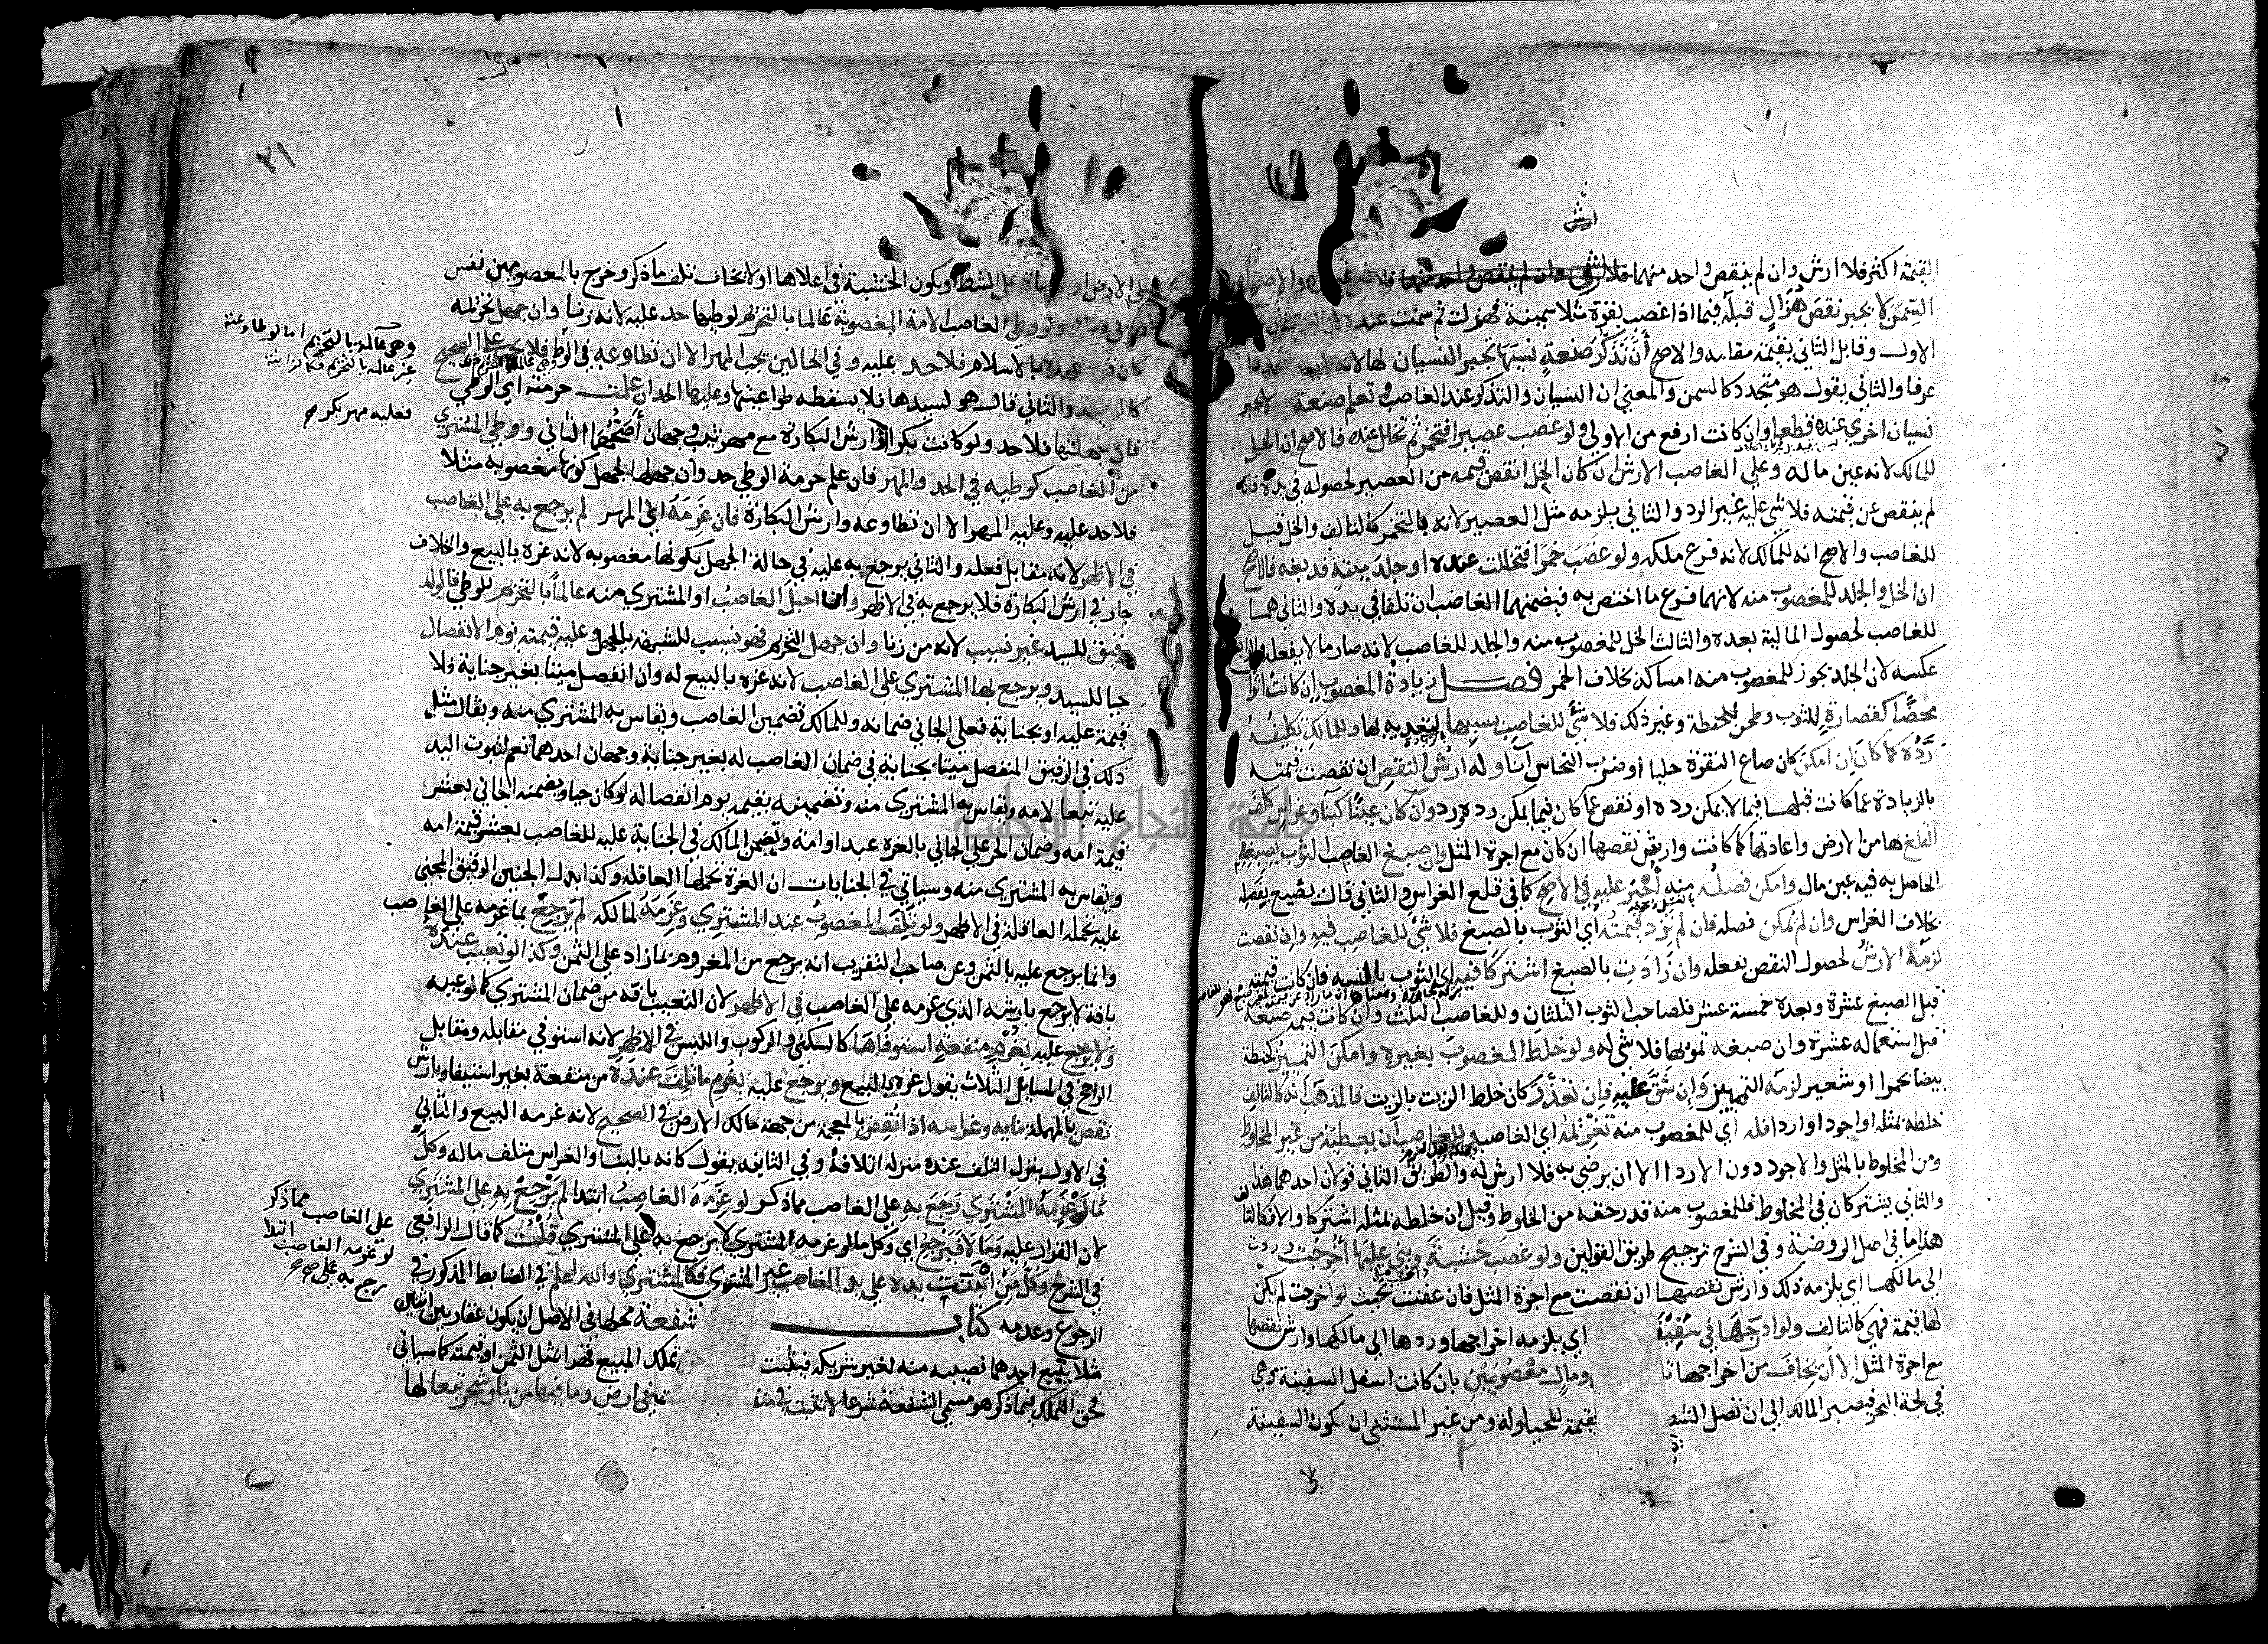 ارش
القيمة اكثر فلا ارش وان لم ينقص واحد منهما فلا شي وان لم ينقص واحد منهما فلا شي والاصح ان
السمن لا يجبر نقص هزال قبله فيما اذا غصب بقرة مثلا سمينة فهزلت ثم سمنت عنده لان
الاول وقابل الثاني بقيمة مقابله والاصح ان تذكر صنعة نسيها يجبر النسيان لها لانه لا يعد متجددا
عرفا والثاني يقول هو متجدد كالسمن والمعني ان النسيان والتذكر عند الغاصب وتعلم صنعة لا يجبر
نسيان اخري عنده قطعا وان كانت ارفع من الاولي ولو غصب عصيرا فتخمر ثم تخلل عنده فالاصح ان الخل
للمالك لانه عين ماله وعلي الغاصب الارش ان كان الخل انقص قيمة من العصير لحصوله في يده فان
لم ينقص عن قيمته فلا شي عليه غير الرد والثاني يلزمه مثل العصير لانه بالتخمر كالتالف والخل قيل
للغاصب والاصح انه للمالك لانه فرع ملكه ولو غصب خمرا فتخللت عنده او جلد ميتة فدبغه فالاصح
ان الخل والجلد للمغصوب منه لانهما فرع ما اختص به فيضمنهما الغاصب ان تلفا في يده والثاني هما
للغاصب لحصول المالية بعده والثالث الخل للمغصوب منه والجلد للغاصب لانه صار مالا بفعله والرابع
عكسه لان الجلد يجوز للمغصوب منه امساكه بخلاف الخمر فصل زيادة المغصوب ان كانت اثرا
محضا كقصارة للثوب وطحن للحنطة وغير ذلك فلا شي للغاصب بسببها لتعديه بها وللمالك تكليفه
رده كما كان ان امكن كان صاغ النقرة حليا او ضرب النحاس اناء وله ارش النقص ان نقصت قيمته
بالزيادة عما كانت قبلها فيما لا يمكن رده او نقص عما كان فيما يمكن رده ورد وان كان عينا كبناء وغراس كلف
القلع لها من الارض واعادتها كما كانت وارش نقصها ان كان مع اجرة المثل وان صبغ الغاصب الثوب بصبغه
الحاصل به فيه عين مال وامكن فصله منه اجبر عليه في الاصح كما في قلع الغراس والثاني قال يضيع بفصله
بخلاف الغراس وان لم يمكن فصله فان لم تزد قيمته اي الثوب بالصبغ فلا شي للغاصب فيه وان نقصت
لزمه الارش لحصول النقص بفعله وان زادت بالصبغ اشتركا فيه اي الثوب بالنسبه فان كانت قيمته
قبل الصبغ عشرة وبعده خمسة عشر فلصاحب الثوب الثلثان وللغاصب الثلث وان كانت قيمة صبغه
قبل استعماله عشرة وان صبغه تمويها فلا شي له ولو خلط المغصوب بغيره وامكن التمييز كحنطة
بيضا بحمرا او شعير لزمه التمييز وان شق عليه فان تعذر كان خلط الزيت بالزيت فالمذهب انه كالتالف
خلطه بمثله او اجود او اردا فله اي للمغصوب منه تغريمه اي الغاصب وللغاصب ان يعطيه من غير المخلوط
ومن المخلوط بالمثل والاجود دون الاردا الا ان يرضي به فلا ارش له والطريق الثاني قولان احدهما هذا
والثاني يشتركان في المخلوط فللمغصوب منه قدر حقه من المخلوط وقيل ان خلطه بمثله اشتركا والا فكالتالف
هذا ما في اصل الروضة وفي الشرح ترجيح طريق القولين ولو غصب خشبة وبني عليها اخرجت وردت
الي مالكها اي يلزمه ذلك وارش نقصها ان نقصت مع اجرة المثل فان عفنت بحيث لو اخرجت لم يكن
لها قيمة فهي كالتالف ولو ادرجها في سفينة اي يلزمه اخراجها وردها الي مالكها وارش نقصها
مع اجرة المثل الا ان يخاف من اخراجها تلف ومال معصومين بان كانت اسفل السفينة وهي
في لجة البحر فيصبر المالك الي ان تصل الشط بقيمة للحيلولة ومن غير المستثني ان يكون السفينة
٢١
علي الارض او علي الشط او يكون الخشبة في اعلاها او لا يخاف تلف ما ذكر وخرج بالمعصومين نفس
ولو وطي الغاصب الامة المغصوبة عالما بالتحريم لوطيها حد عليه لانه زنا وان جهل تحريمه
كان قرب عهده بالاسلام فلا حد عليه وفي الحالين يجب المهر الا ان تطاوعه في الوطي فلا يجب علي الصحيح
وهي عالمة بالتحريم اما لو طاوعته
غير عالمة بالتحريم فكما لو اشتبه
فعليه مهر بكر صح
كالزانية والثاني قال هو لسيدها فلا يسقط بطواعيتها وعليها الحد ان علمت حرمته اي الوطي
فان جهلتها فلا حد ولو كانت بكرا وارش البكارة مع مهر ثيب وجهان اصحهما الثاني ووطي المشتري
من الغاصب كوطيه في الحد والمهر فان علم حرمة الوطي حد وان جهلها لجهل كونها مغصوبة مثلا
فلا حد عليه وعليه المهر الا ان تطاوعه وارش البكارة فان غرمه اي المهر لم يرجع به علي الغاصب
في الاظهر لانه مقابل فعله والثاني يرجع به عليه في حالة الجهل بكونها مغصوبة لانه غره بالبيع والخلاف
جار في ارش البكارة فلا يرجع به في الاظهر وان احبل الغاصب او المشتري منه عالما بالتحريم للوطي فالولد
رقيق للسيد غير نسيب لانه من زنا وان جهل التحريم فهو نسيب للشبهة بالجهل وعليه قيمته يوم الانفصال
حيا للسيد ويرجع بها المشتري علي الغاصب لانه غره بالبيع له وان انفصل ميتا بغير جناية فلا
قيمة عليه او بجناية فعلي الجاني ضمانه وللمالك تضمين الغاصب ويقاس به المشتري منه ويقال مثل
ذلك في الرقيق المنفصل ميتا بجناية في ضمان الغاصب له بغير جناية وجهان احدهما نعم لثبوت اليد
عليه تبعا لامه ويقاس به المشتري منه وتضمينه بقيمته يوم انفصاله لو كان حيا ويضمنه الجاني بعشر
قيمة امه وضمان الحر علي الجاني بالغرة عبد او امة ويضمن المالك في الجناية عليه للغاصب بعشر قيمة امه
ويقاس به المشتري منه وسياتي في الجنايات ان الغرة تحملها العاقلة وكذا بدل الجنين الرقيق المجني
عليه تحمله العاقلة في الاظهر ولو تلف المغصوب عند المشتري وغرمه لمالكه لم يرجع بما غرمه علي الغاصب
وانما يرجع عليه بالثمن وعن صاحب التقريب انه يرجع من المغروم بما زاد علي الثمن وكذا لو تعيب عنده
بافة لا يرجع بارشه الذي غرمه علي الغاصب في الاظهر لان التعيب بافة من ضمان المشتري كما لو عيبه
ولا يرجع عليه بغرم منفعة استوفاها كالسكني والركوب واللبس في الاظهر لانه استوفي مقابله ومقابل
الراجح في المسايل الثلاث يقول غره بالبيع ويرجع عليه بغرم ما تلف عنده من منفعة بغير استيفا وبارش
نقص بالمهملة بنايه وغراسه اذا نقض بالمعجمة من جهة مالك الارض في الصحيح لانه غرمه البيع والثاني
في الاول ينزل التلف عنده منزلة اتلافه وفي الثانيه يقول كانه بالبنا والغراس متلف ماله وكل
ما لو غرمه المشتري رجع به علي الغاصب مما ذكر لو غرمه الغاصب ابتدا لم يرجع به علي المشتري
لان القرار عليه وما لا فيرجع اي وكل ما لو غرمه المشتري لا يرجع به علي المشتري قلت كما قال الرافعي
مما ذكر
علي الغاصب
لو غرمه الغاصب ابتدا
رجع به علي صح
في الشرح وكل من انبنت يده علي يد الغاصب غير المشتري فكالمشتري والله اعلم في الضابط المذكور في
الرجوع وعدمه كتاب الشفعة محطها في الاصل ان يكون عقار بين اثنين
مثلا يبيع احدهما نصيبه منه لغير شريكه فيثبت حق تملك المبيع قهرا بمثل الثمن او قيمته كما سياتي
فحق التملك فيما ذكر هو مسمي الشفعة شرعا لا تثبت في ارض وما فيها من بنا وشجر تبعا لها